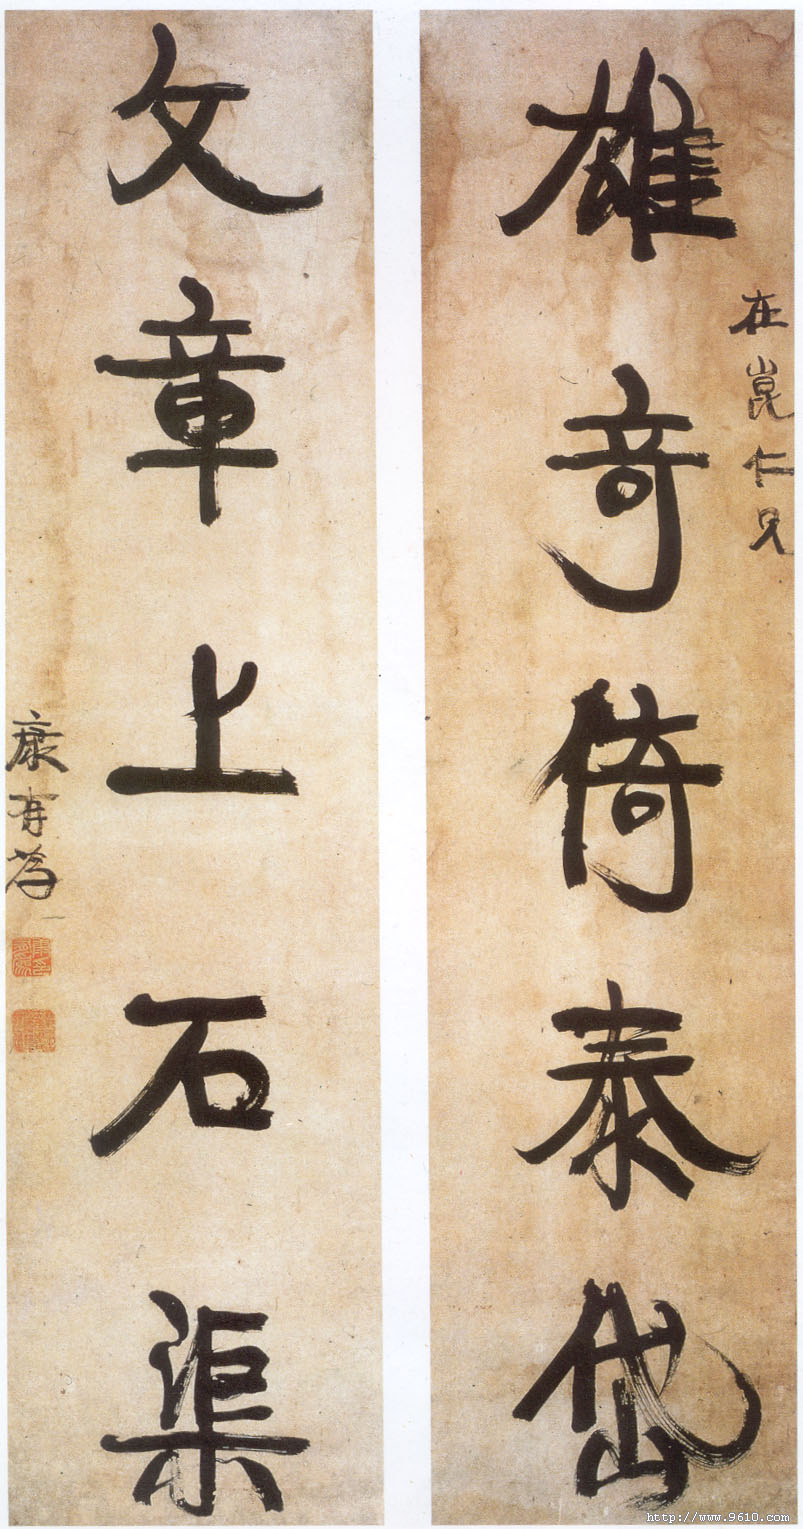 雄奇倚泰岱
在崑仁兄
文章上石渠
康有為
http://www.9610.com